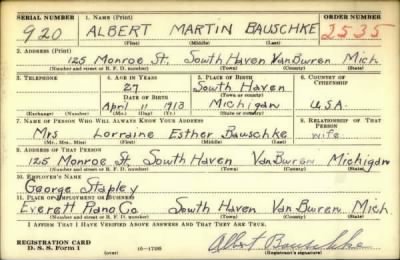 SERIAL NUMBER 1. NAME (Print) ORDER NUMBER
920 ALBERT MARTIN BAUSCHKE 2535
(First) (Middle) (Last)
2. ADDRESS (Print)
125 Monroe St. South Haven Van Buren Mich
(Number and street or R. F. D. number) (Town) (County) (State)
3. TELEPHONE 4. AGE IN YEARS 5. PLACE OF BIRTH 6. COUNTRY OF CITIZENSHIP
27 South Haven
DATE OF BIRTH (Town or county)
April 11 1913 Michigan U.S.A.
(Exchange) (Number) (Mo.) (Day) (Yr.) (State or country)
7. NAME OF PERSON WHO WILL ALWAYS KNOW YOUR ADDRESS 8. RELATIONSHIP OF THAT PERSON
Mrs Lorraine Esther Bauschke wife
(Mr., Mrs., Miss) (First) (Middle) (Last)
9. ADDRESS OF THAT PERSON
125 Monroe St. South Haven Van Buren Michigan
(Number and street or R. F. D. number) (Town) (County) (State)
10. EMPLOYER'S NAME
George Stapley
11. PLACE OF EMPLOYMENT OR BUSINESS
Everett Piano Co South Haven Van Buren Mich
(Number and street or R. F. D. number) (Town) (County) (State)
I AFFIRM THAT I HAVE VERIFIED ABOVE ANSWERS AND THAT THEY ARE TRUE.
REGISTRATION CARD
D. S. S. Form 1 (over) 16-17105 Albert Bauschke
(Registrant's signature)